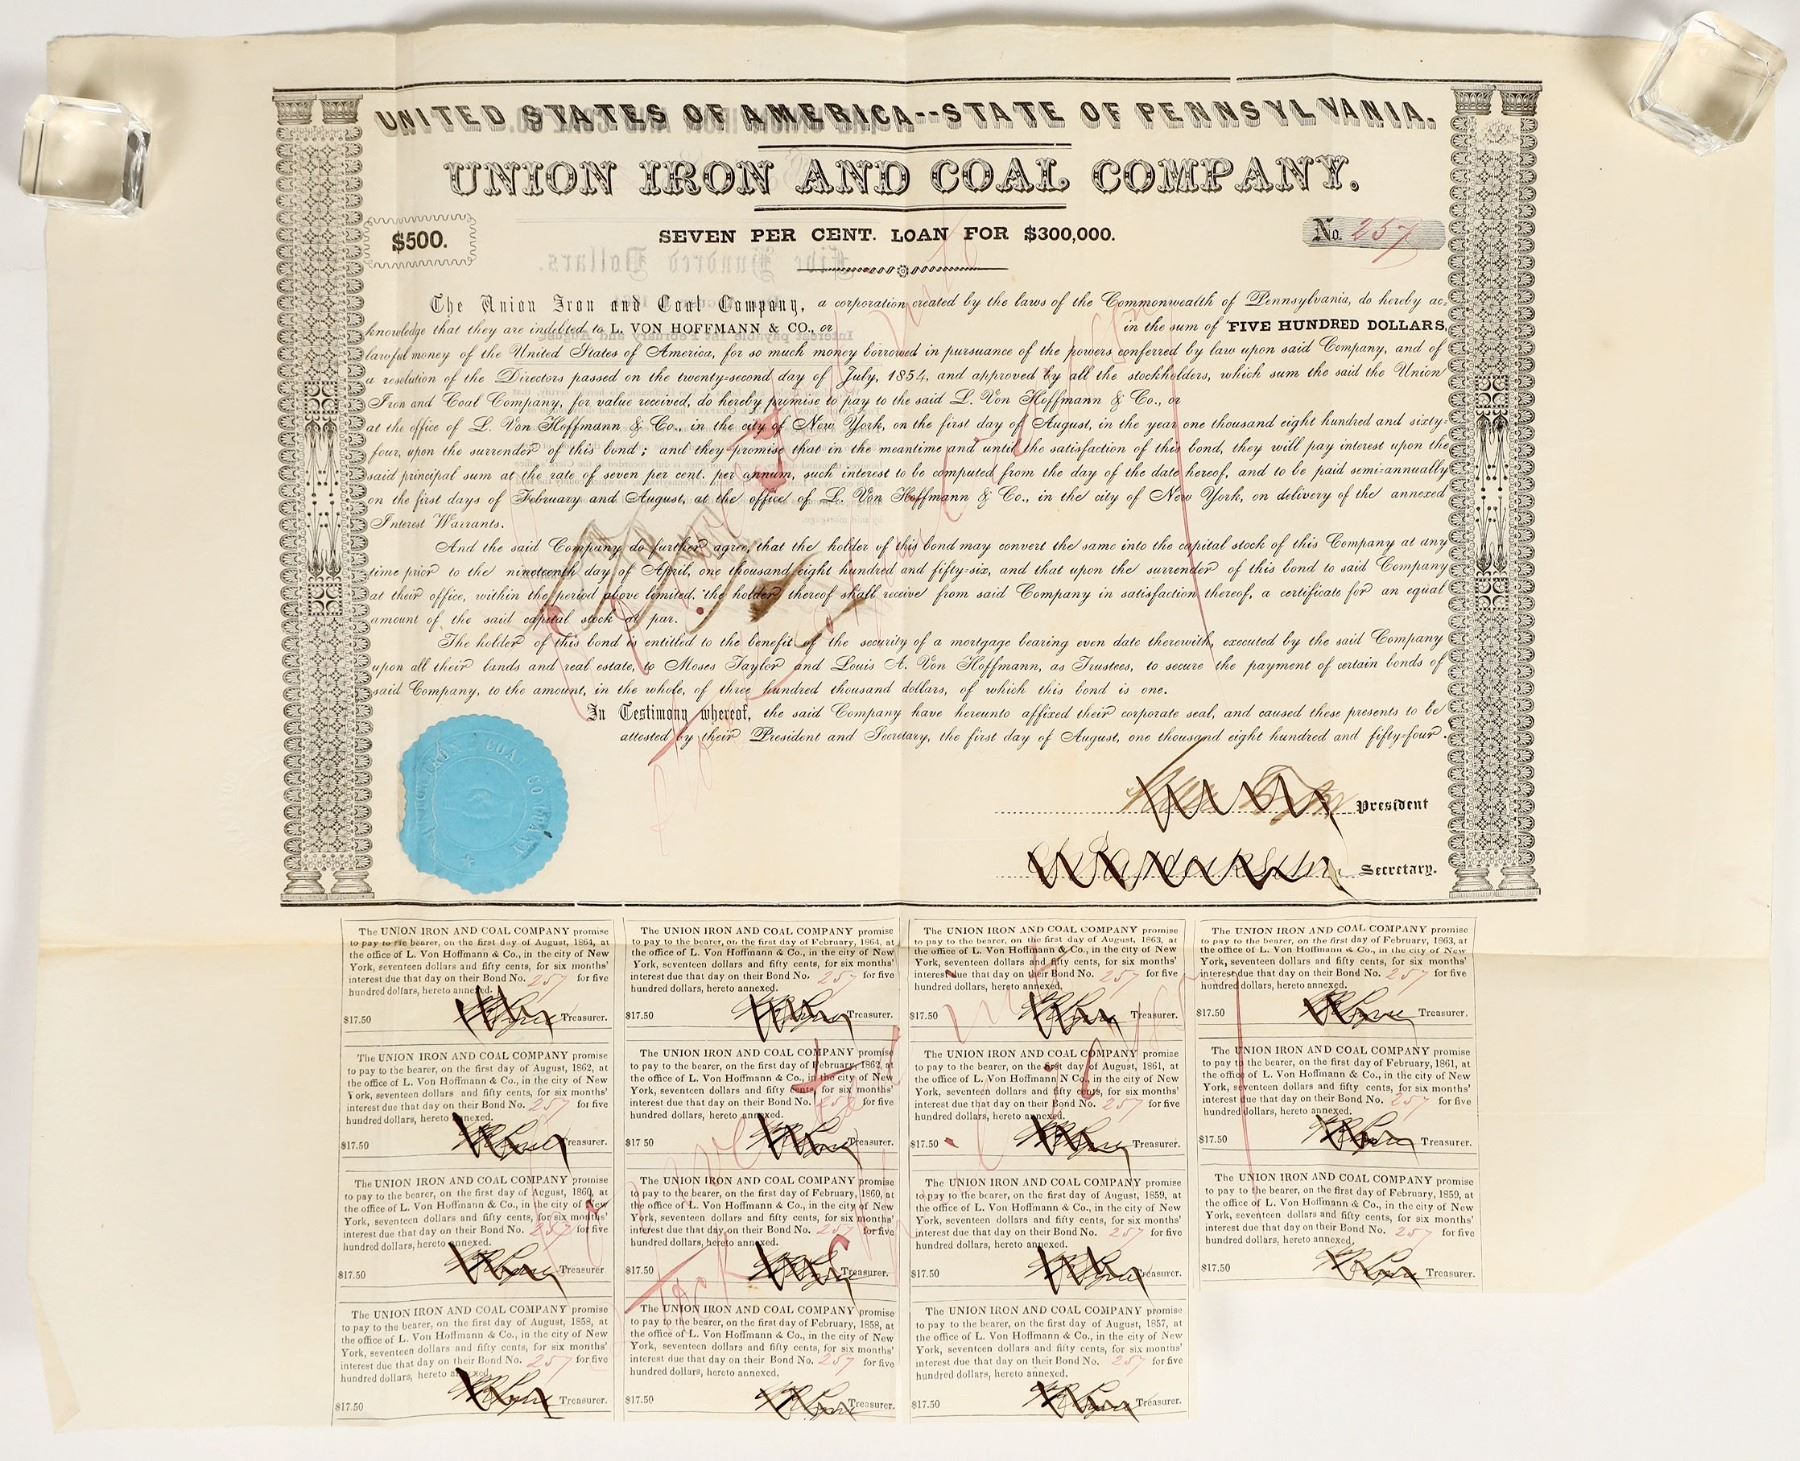 UNITED STATES OF AMERICA--STATE OF PENNSYLVANIA.
UNION IRON AND COAL COMPANY.
$500.
SEVEN PER CENT. LOAN FOR $300,000.
No. 257
The Union Iron and Coal Company, a corporation created by the laws of the Commonwealth of Pennsylvania, do hereby ac-
knowledge that they are indebted to L. VON HOFFMANN & CO., or in the sum of FIVE HUNDRED DOLLARS,
lawful money of the United States of America, for so much money borrowed in pursuance of the powers conferred by law upon said Company, and of
a resolution of the Directors passed on the twenty-second day of July, 1854, and approved by all the stockholders, which sum the said the Union
Iron and Coal Company, for value received, do hereby promise to pay to the said L. Von Hoffmann & Co., or
at the office of L. Von Hoffmann & Co., in the city of New York, on the first day of August, in the year one thousand eight hundred and sixty-
four, upon the surrender of this bond; and they promise that in the meantime and until the satisfaction of this bond, they will pay interest upon the
said principal sum at the rate of seven per cent. per annum, such interest to be computed from the day of the date hereof, and to be paid semi-annually
on the first days of February and August, at the office of L. Von Hoffmann & Co., in the city of New York, on delivery of the annexed
Interest Warrants.
And the said Company do further agree, that the holder of this bond may convert the same into the capital stock of this Company at any
time prior to the nineteenth day of April, one thousand eight hundred and fifty-six, and that upon the surrender of this bond to said Company
at their office, within the period above limited, the holder thereof shall receive from said Company in satisfaction thereof, a certificate for an equal
amount of the said capital stock at par.
The holder of this bond is entitled to the benefit of the security of a mortgage bearing even date therewith, executed by the said Company
upon all their lands and real estate, to Moses Taylor and Louis A. Von Hoffmann, as Trustees, to secure the payment of certain bonds of
said Company, to the amount, in the whole, of three hundred thousand dollars, of which this bond is one.
In Testimony whereof, the said Company have hereunto affixed their corporate seal, and caused these presents to be
attested by their President and Secretary, the first day of August, one thousand eight hundred and fifty-four.
President
Secretary.
The UNION IRON AND COAL COMPANY promise
to pay to the bearer, on the first day of August, 1864, at
the office of L. Von Hoffmann & Co., in the city of New
York, seventeen dollars and fifty cents, for six months'
interest due that day on their Bond No. 257 for five
hundred dollars, hereto annexed.
$17.50 Treasurer.
The UNION IRON AND COAL COMPANY promise
to pay to the bearer, on the first day of February, 1864, at
the office of L. Von Hoffmann & Co., in the city of New
York, seventeen dollars and fifty cents, for six months'
interest due that day on their Bond No. 257 for five
hundred dollars, hereto annexed.
$17.50 Treasurer.
The UNION IRON AND COAL COMPANY promise
to pay to the bearer, on the first day of August, 1863, at
the office of L. Von Hoffmann & Co., in the city of New
York, seventeen dollars and fifty cents, for six months'
interest due that day on their Bond No. 257 for five
hundred dollars, hereto annexed.
$17.50 Treasurer.
The UNION IRON AND COAL COMPANY promise
to pay to the bearer, on the first day of February, 1863, at
the office of L. Von Hoffmann & Co., in the city of New
York, seventeen dollars and fifty cents, for six months'
interest due that day on their Bond No. 257 for five
hundred dollars, hereto annexed.
$17.50 Treasurer.
The UNION IRON AND COAL COMPANY promise
to pay to the bearer, on the first day of August, 1862, at
the office of L. Von Hoffmann & Co., in the city of New
York, seventeen dollars and fifty cents, for six months'
interest due that day on their Bond No. 257 for five
hundred dollars, hereto annexed.
$17.50 Treasurer.
The UNION IRON AND COAL COMPANY promise
to pay to the bearer, on the first day of February, 1862, at
the office of L. Von Hoffmann & Co., in the city of New
York, seventeen dollars and fifty cents, for six months'
interest due that day on their Bond No. 258 for five
hundred dollars, hereto annexed.
$17 50 Treasurer.
The UNION IRON AND COAL COMPANY promise
to pay to the bearer, on the first day of August, 1861, at
the office of L. Von Hoffmann N Co., in the city of New
York, seventeen dollars and fifty cents, for six months'
interest due that day on their Bond No. 257 for five
hundred dollars, hereto annexed.
$17.50 Treasurer.
The UNION IRON AND COAL COMPANY promise
to pay to the bearer, on the first day of February, 1861, at
the office of L. Von Hoffmann & Co., in the city of New
York, seventeen dollars and fifty cents, for six months'
interest due that day on their Bond No. 257 for five
hundred dollars, hereto annexed.
$17.50 Treasurer.
The UNION IRON AND COAL COMPANY promise
to pay to the bearer, on the first day of August, 1860, at
the office of L. Von Hoffmann & Co., in the city of New
York, seventeen dollars and fifty cents, for six months'
interest due that day on their Bond No. 257 for five
hundred dollars, hereto annexed.
$17.50 Treasurer
The UNION IRON AND COAL COMPANY promise
to pay to the bearer, on the first day of February, 1860, at
the office of L. Von Hoffmann & Co., in the city of New
York, seventeen dollars and fifty cents, for six months'
interest due that day on their Bond No. 257 for five
hundred dollars, hereto annexed.
$17.50 Treasurer.
The UNION IRON AND COAL COMPANY promise
to pay to the bearer, on the first day of August, 1859, at
the office of L. Von Hoffmann & Co., in the city of New
York, seventeen dollars and fifty cents, for six months'
interest due that day on their Bond No. 257 for five
hundred dollars, hereto annexed.
$17.50 Treasurer.
The UNION IRON AND COAL COMPANY promise
to pay to the bearer, on the first day of February, 1859, at
the office of L. Von Hoffmann & Co., in the city of New
York, seventeen dollars and fifty cents, for six months'
interest due that day on their Bond No. 257 for five
hundred dollars, hereto annexed.
$17.50 Treasurer.
The UNION IRON AND COAL COMPANY promise
to pay to the bearer, on the first day of August, 1858, at
the office of L. Von Hoffmann & Co., in the city of New
York, seventeen dollars and fifty cents, for six months'
interest due that day on their Bond No. 257 for five
hundred dollars, hereto annexed.
$17.50 Treasurer.
The UNION IRON AND COAL COMPANY promise
to pay to the bearer, on the first day of February, 1858, at
the office of L. Von Hoffmann & Co., in the city of New
York, seventeen dollars and fifty cents, for six months'
interest due that day on their Bond No. 257 for five
hundred dollars, hereto annexed,
$17.50 Treasurer.
The UNION IRON AND COAL COMPANY promise
to pay to the bearer, on the first day of August, 1857, at
the office of L. Von Hoffmann & Co., in the city of New
York, seventeen dollars and fifty cents, for six months'
interest due that day on their Bond No. 257 for five
hundred dollars, hereto annexed.
$17.50 Treasurer.